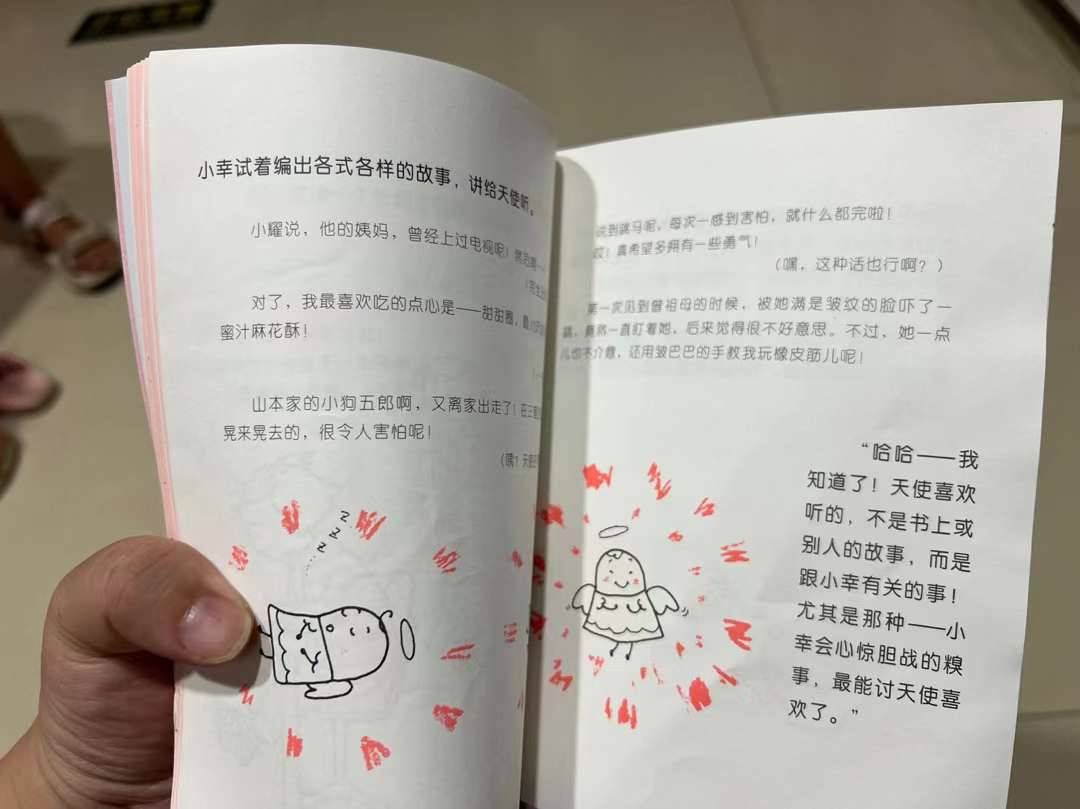 小幸试着编出各式各样的故事，讲给天使听。
小耀说，他的姨妈，曾经上过电视呢！
对了，我最喜欢吃的点心是——甜甜圈，
蜜汁麻花酥！
山本家的小狗五郎啊，又离家出走了！在三
晃来晃去的，很令人害怕呢！
z z z z...
说到骑马呢，每次一感到害怕，就什么都完啦！
哎！真希望多拥有一些勇气！
（嘿，这种话也行啊？）
第一次见到曾祖母的时候，被她满是皱纹的脸吓了一
跳，竟然一直盯着她，后来觉得很不好意思。不过，她一点
儿也不介意，还用皱巴巴的手教我玩橡皮筋儿呢！
“哈哈——我
知道了！天使喜欢
听的，不是书上或
别人的故事，而是
跟小幸有关的事！
尤其是那种——小
幸会心惊胆战的糗
事，最能讨天使喜
欢了。”